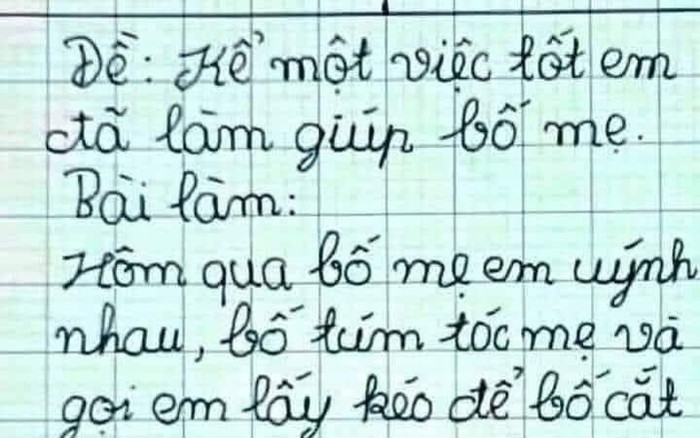 Đề: Kể một việc tốt em
đã làm giúp bố mẹ.
Bài làm:
Hôm qua bố mẹ em uýnh
nhau, bố túm tóc mẹ và
gọi em lấy kéo để bố cắt